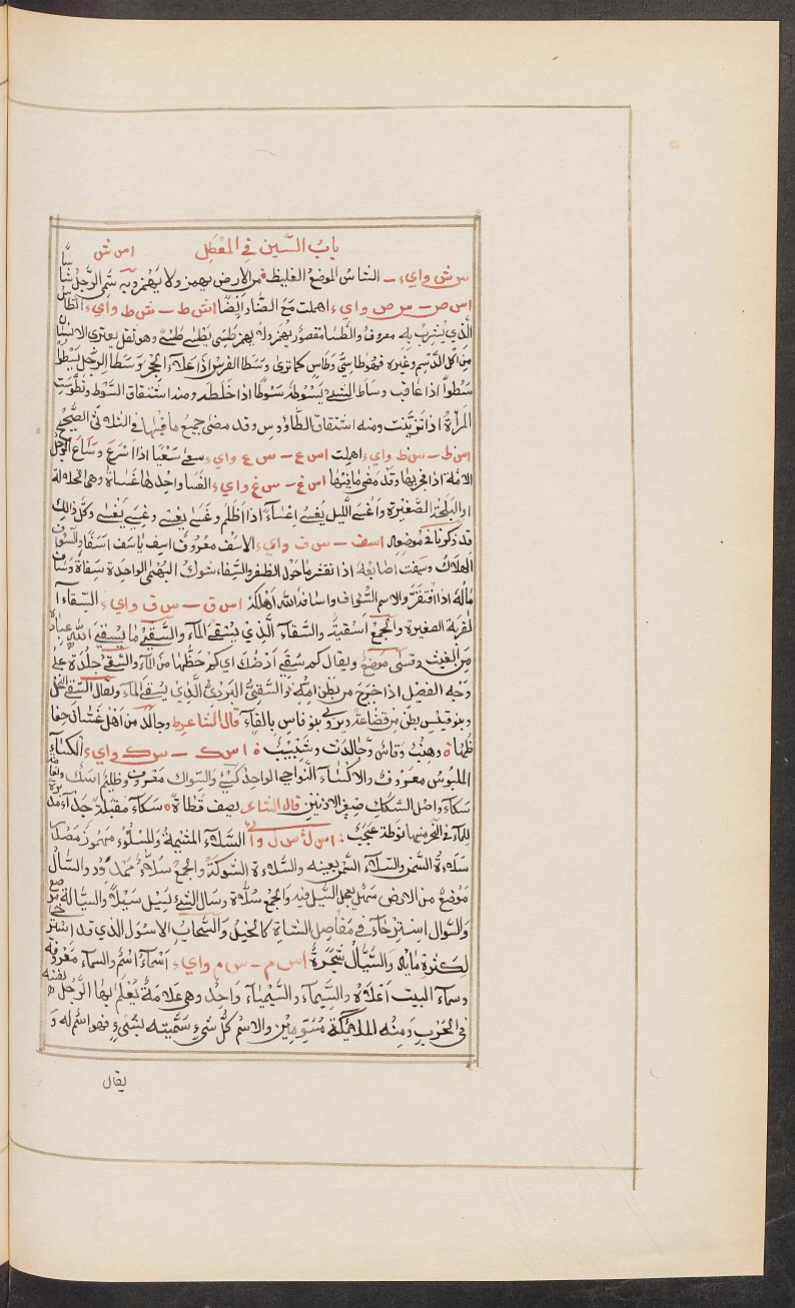 باب السّين في المعتل ا س ش
س ش واي ء ــ الشاسُ الموضع الغليظ من الارض يهمز ولا يهمز وبه سُمّي الرّجل شاسًا
ا س ص ــ س ص واي ء اهملت مَعَ الضّاد اَيضًا ا س ط ــ س ط واي ء الطاس
الّذي يشرب به معروف والطَّسَا مقصور يهمز ولا يهمز طَسِئ يَطْسَأ طَسْأً وهو ثقل يعتري الانسان
من اكل الدّسم وغيره فهو طاسِئٌ وطَاسٍ كما ترى وسَطا الفرسُ اذا علا الحجر وسَطا الرّجل يَسْطُو
سَطْواً اذا عاقب وسَاطَ الشيء يَسُوطُه سَوْطًا اذا خلطه ومنه اشتقاق السَّوط وتطوّست
المرأة اذا تزيّنت ومنه اشتقاق الطّاؤوس وقد مضى جميع ما فيها في الثلاثي الصّحيح
ا س ظ ــ س ظ واي ء اهملت ا س ع ــ س ع واي ء سعَى سَعْيًا اذا اسرع وسَاعَ الرجل
الامة اذا فجر بها وقد مضى ما فيها ا س غ ــ س غ واي ء الغَسا واحدها غَساة وهي الخلالة
او البلحة الصّغيرة واَغْسَى اللّيل يُغْسِي اغساءً اذا اَظْلَم وغَسَى يغسى وغَسِيَ يَغْسَى وكلّ ذلك
قد ذكرناه في مَوْضِعه ا س ف ــ س ف واي ء الاسَف معروف اسِف ياسَف اسَفًا والسُّواف
الهلاك وسَئِفَت اصابعُه اذا تقشّر ما حول الظفر والسَّفاء شوك البُهْمَى الواحدة سَفاة وسَافَ
مالُه اذا افتقر والاسم السُّواف واسافه الله اَهْلكَهُ ا س ق ــ س ق واي ء السِّقاء ا
لقربة الصغيرة والجمع اَسْقية والسَّقّاء الَّذي يَسْقي الماء والسَّقْيُ ما يَسْقي الله عِبادَه
من الغيث وتسمّى موضع ويقال كم سِقْي اَرْضُك اي كم حَظّها من الماء والسِّقْي جلدة على
وَجه الفصيل اذا خرج من بطن اُمّه والسَّقِيُّ البرديُّ الَّذي يسقي الماء ويقال السَّقِيّ النخل
وبنو قيس بطن من قضاعة ويروى بنو فاس بالفاء قال الشاعر وجالد من اهل غسّان حفا
ظها وهِنْبٌ وقاس وجالدَت وشَبِيبُ ا س ك ــ س ك واي ء الكساء
الملبوس معروف والاكساء النّواحي الواحد كُسْيٌ والسّواك معروف وظليم اسَكّ ونعامة
سَكّاء واصل السَّكَك صغر الاذنين قال الشاعر يصف قطاة سَكّاء مقبلةً حذّاء مد
للماء في النحر منها نَوْطة عَجَبُ ا س ل س ل واي السّلاء المشيمة والسلُوء مهموز مصدر
سَلاء السَّمْن والسِّلاء السَّمن بعينه والسُّلاءة الشّوكة والجمع سُلّاءٌ ممدود والسّالّ
مَوضعٌ من الارض سَهْل يصل السَّيل فيه والجمع سُلّان وسَال الشيء يَسيل سَيْلاً والسّيّالة موضع
والسَّوَل استرخاء في مفاصل الشاة كالخيل والسّحاب الاسول الذي قد استرخى
لكثرة مائه والسَّيَال شجرة ا س م ــ س م واي ء اَسماء اسم والسماء معروفة
وسماء البيت اَعلاه والسِّيماء والسِّيمياء واحد وهي علامة يُعلِم بها الرّجل نفسه
في الحَرْبِ ومِنْه الملائكة مُسَوّمين والاسْم كلّ شيء سَمّيته بشيءٍ فهو اسْم له وَ
يقال